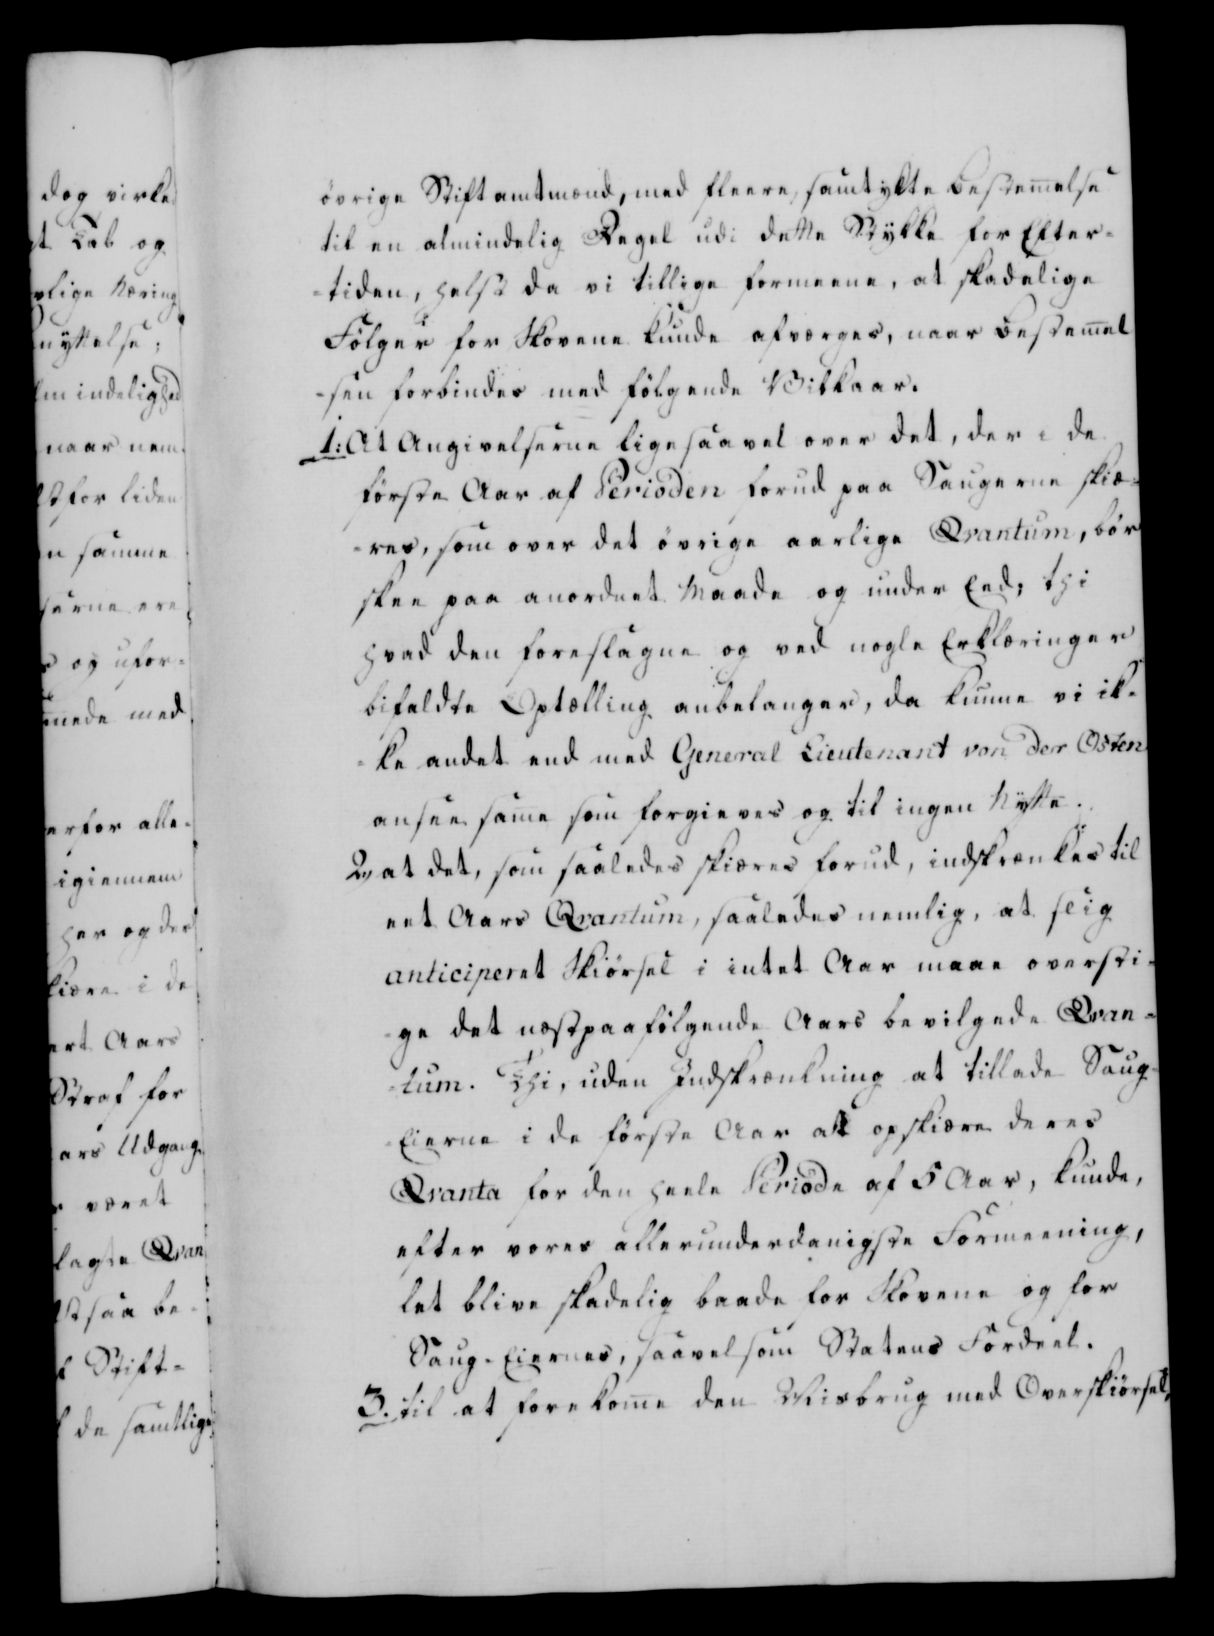 dog virke
t Tab og
vlige Næring
nyttelse;
lmindelighed
naar nem-
for liden
n samme
serne ere
s og ufor-
mede med
erfor alle-
igiennem
her og der
kiære i de
ert Aars
Straf for
ars Udgang
r været
lagte Qvan
saa be-
f Stift-
de samtlige
övrige Stiftamtmænd, med fleere, samtykte Bestem̄else
til en almindelig Regel udi dette Stykke for Efter-
-tiden, helst da vi tillige formeene, at skadelige
Fölger for Skovene kunde afværges, naar Bestem̄el
-sen forbindes med fölgende Vilkaar.
1: At Angivelserne ligesaavel over det, der i de
förste Aar af Perioden forud paa Saugerne skiæ-
-res, som over det övrige aarlige Qvantum, bör
skee paa anordnet Maade og under Eed; thi
hvad den foreslagne og ved nogle Erklæringer
bifaldte Optælling anbelanger, da kunne vi ik-
-ke andet end med General Lieutenant von der Osten
ansee sam̄e som forgieves og til ingen Nytte.
2, at det, som saaledes skiæres forud, indskrænkes til
eet Aars Qvantum, saaledes nemlig, at slig
anticiperet Skiörsel i intet Aar maae oversti-
-ge det næstpaafölgende Aars bevilgede Qvan-
-tum. Thi, uden Indskrænkning at tillade Saug-
-Eierne i de förste Aar at opskiære deres
Qvanta for den heele Periode af 5 Aar, kunde,
efter vores allerunderdanigste Formeening,
let blive skadelig baade for Skovene og for
Saug-Eiernes, saavelsom Statens Fordeel.
3. til at forekom̄e den Misbrug med Overskiörsel,